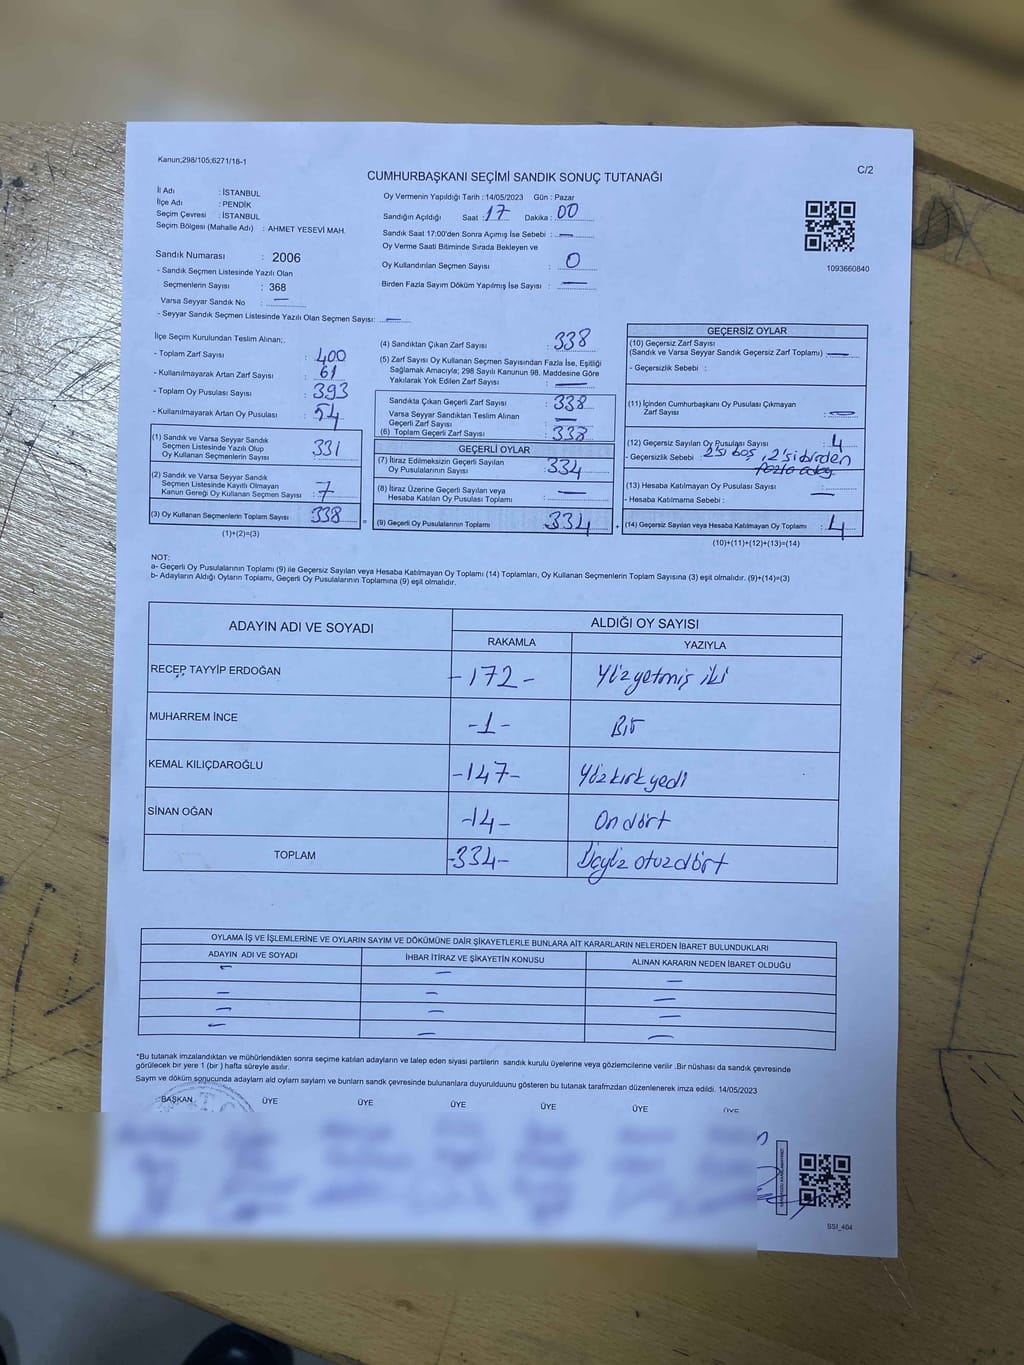 Kanun;298/105;6271/18-1
C/2
CUMHURBAŞKANI SEÇİMİ SANDIK SONUÇ TUTANAĞI
İl Adı : İSTANBUL
İlçe Adı : PENDİK
Seçim Çevresi : İSTANBUL
Seçim Bölgesi (Mahalle Adı) : AHMET YESEVİ MAH.
Sandık Numarası : 2006
- Sandık Seçmen Listesinde Yazılı Olan
Seçmenlerin Sayısı : 368
Varsa Seyyar Sandık No : —
- Seyyar Sandık Seçmen Listesinde Yazılı Olan Seçmen Sayısı: —
Oy Vermenin Yapıldığı Tarih : 14/05/2023 Gün : Pazar
Sandığın Açıldığı Saat : 17 Dakika : 00
Sandık Saat 17:00'den Sonra Açımış İse Sebebi : —
Oy Verme Saati Bitiminde Sırada Bekleyen ve
Oy Kullandırılan Seçmen Sayısı : 0
Birden Fazla Sayım Döküm Yapılmış İse Sayısı : —
1093660840
İlçe Seçim Kurulundan Teslim Alınan;.
- Toplam Zarf Sayısı : 400
- Kullanılmayarak Artan Zarf Sayısı : 61
- Toplam Oy Pusulası Sayısı : 393
- Kullanılmayarak Artan Oy Pusulası : 54
(1) Sandık ve Varsa Seyyar Sandık
Seçmen Listesinde Yazılı Olup
Oy Kullanan Seçmenlerin Sayısı : 331
(2) Sandık ve Varsa Seyyar Sandık
Seçmen Listesinde Kayıtlı Olmayan
Kanun Gereği Oy Kullanan Seçmen Sayısı : 7
(3) Oy Kullanan Seçmenlerin Toplam Sayısı : 338
(1)+(2)=(3)
(4) Sandıktan Çıkan Zarf Sayısı : 338
(5) Zarf Sayısı Oy Kullanan Seçmen Sayısından Fazla İse, Eşitliği
Sağlamak Amacıyla; 298 Sayılı Kanunun 98. Maddesine Göre
Yakılarak Yok Edilen Zarf Sayısı : —
Sandıkta Çıkan Geçerli Zarf Sayısı : 338
Varsa Seyyar Sandıktan Teslim Alınan
Geçerli Zarf Sayısı : —
(6) Toplam Geçerli Zarf Sayısı : 338
GEÇERLİ OYLAR
(7) İtiraz Edilmeksizin Geçerli Sayılan
Oy Pusulalarının Sayısı : 334
(8) İtiraz Üzerine Geçerli Sayılan veya
Hesaba Katılan Oy Pusulası Toplamı : —
= (9) Geçerli Oy Pusulalarının Toplamı : 334 +
GEÇERSİZ OYLAR
(10) Geçersiz Zarf Sayısı
(Sandık ve Varsa Seyyar Sandık Geçersiz Zarf Toplamı) —
- Geçersizlik Sebebi :
(11) İçinden Cumhurbaşkanı Oy Pusulası Çıkmayan
Zarf Sayısı : —
(12) Geçersiz Sayılan Oy Pusulası Sayısı : 4
- Geçersizlik Sebebi : 2'si boş, 2'si birden
fazla aday
(13) Hesaba Katılmayan Oy Pusulası Sayısı : —
- Hesaba Katılmama Sebebi :
(14) Geçersiz Sayılan veya Hesaba Katılmayan Oy Toplamı : 4
(10)+(11)+(12)+(13)=(14)
NOT:
a- Geçerli Oy Pusulalarının Toplamı (9) ile Geçersiz Sayılan veya Hesaba Katılmayan Oy Toplamı (14) Toplamları, Oy Kullanan Seçmenlerin Toplam Sayısına (3) eşit olmalıdır. (9)+(14)=(3)
b- Adayların Aldığı Oyların Toplamı, Geçerli Oy Pusulalarının Toplamına (9) eşit olmalıdır.
ADAYIN ADI VE SOYADI
ALDIĞI OY SAYISI
RAKAMLA YAZIYLA
RECEP TAYYİP ERDOĞAN -172- Yüzyetmiş iki
MUHARREM İNCE -1- Bir
KEMAL KILIÇDAROĞLU -147- Yüzkırkyedi
SİNAN OĞAN -14- On dört
TOPLAM -334- Üçyüz otuzdört
OYLAMA İŞ VE İŞLEMLERİNE VE OYLARIN SAYIM VE DÖKÜMÜNE DAİR ŞİKAYETLERLE BUNLARA AİT KARARLARIN NELERDEN İBARET BULUNDUKLARI
ADAYIN ADI VE SOYADI İHBAR İTİRAZ VE ŞİKAYETİN KONUSU ALINAN KARARIN NEDEN İBARET OLDUĞU
— — —
— — —
— — —
— — —
*Bu tutanak imzalandıktan ve mühürlendikten sonra seçime katılan adayların ve talep eden siyasi partilerin sandık kurulu üyelerine veya gözlemcilerine verilir .Bir nüshası da sandık çevresinde
görülecek bir yere 1 (bir ) hafta süreyle asılır.
Sayım ve döküm sonucunda adayların ald oyların sayların ve bunların sandk çevresinde bulunanlara duyurulduunu gösteren bu tutanak tarafmzdan düzenlenerek imza edildi. 14/05/2023
BAŞKAN ÜYE ÜYE ÜYE ÜYE ÜYE ÜYE
SSI_404